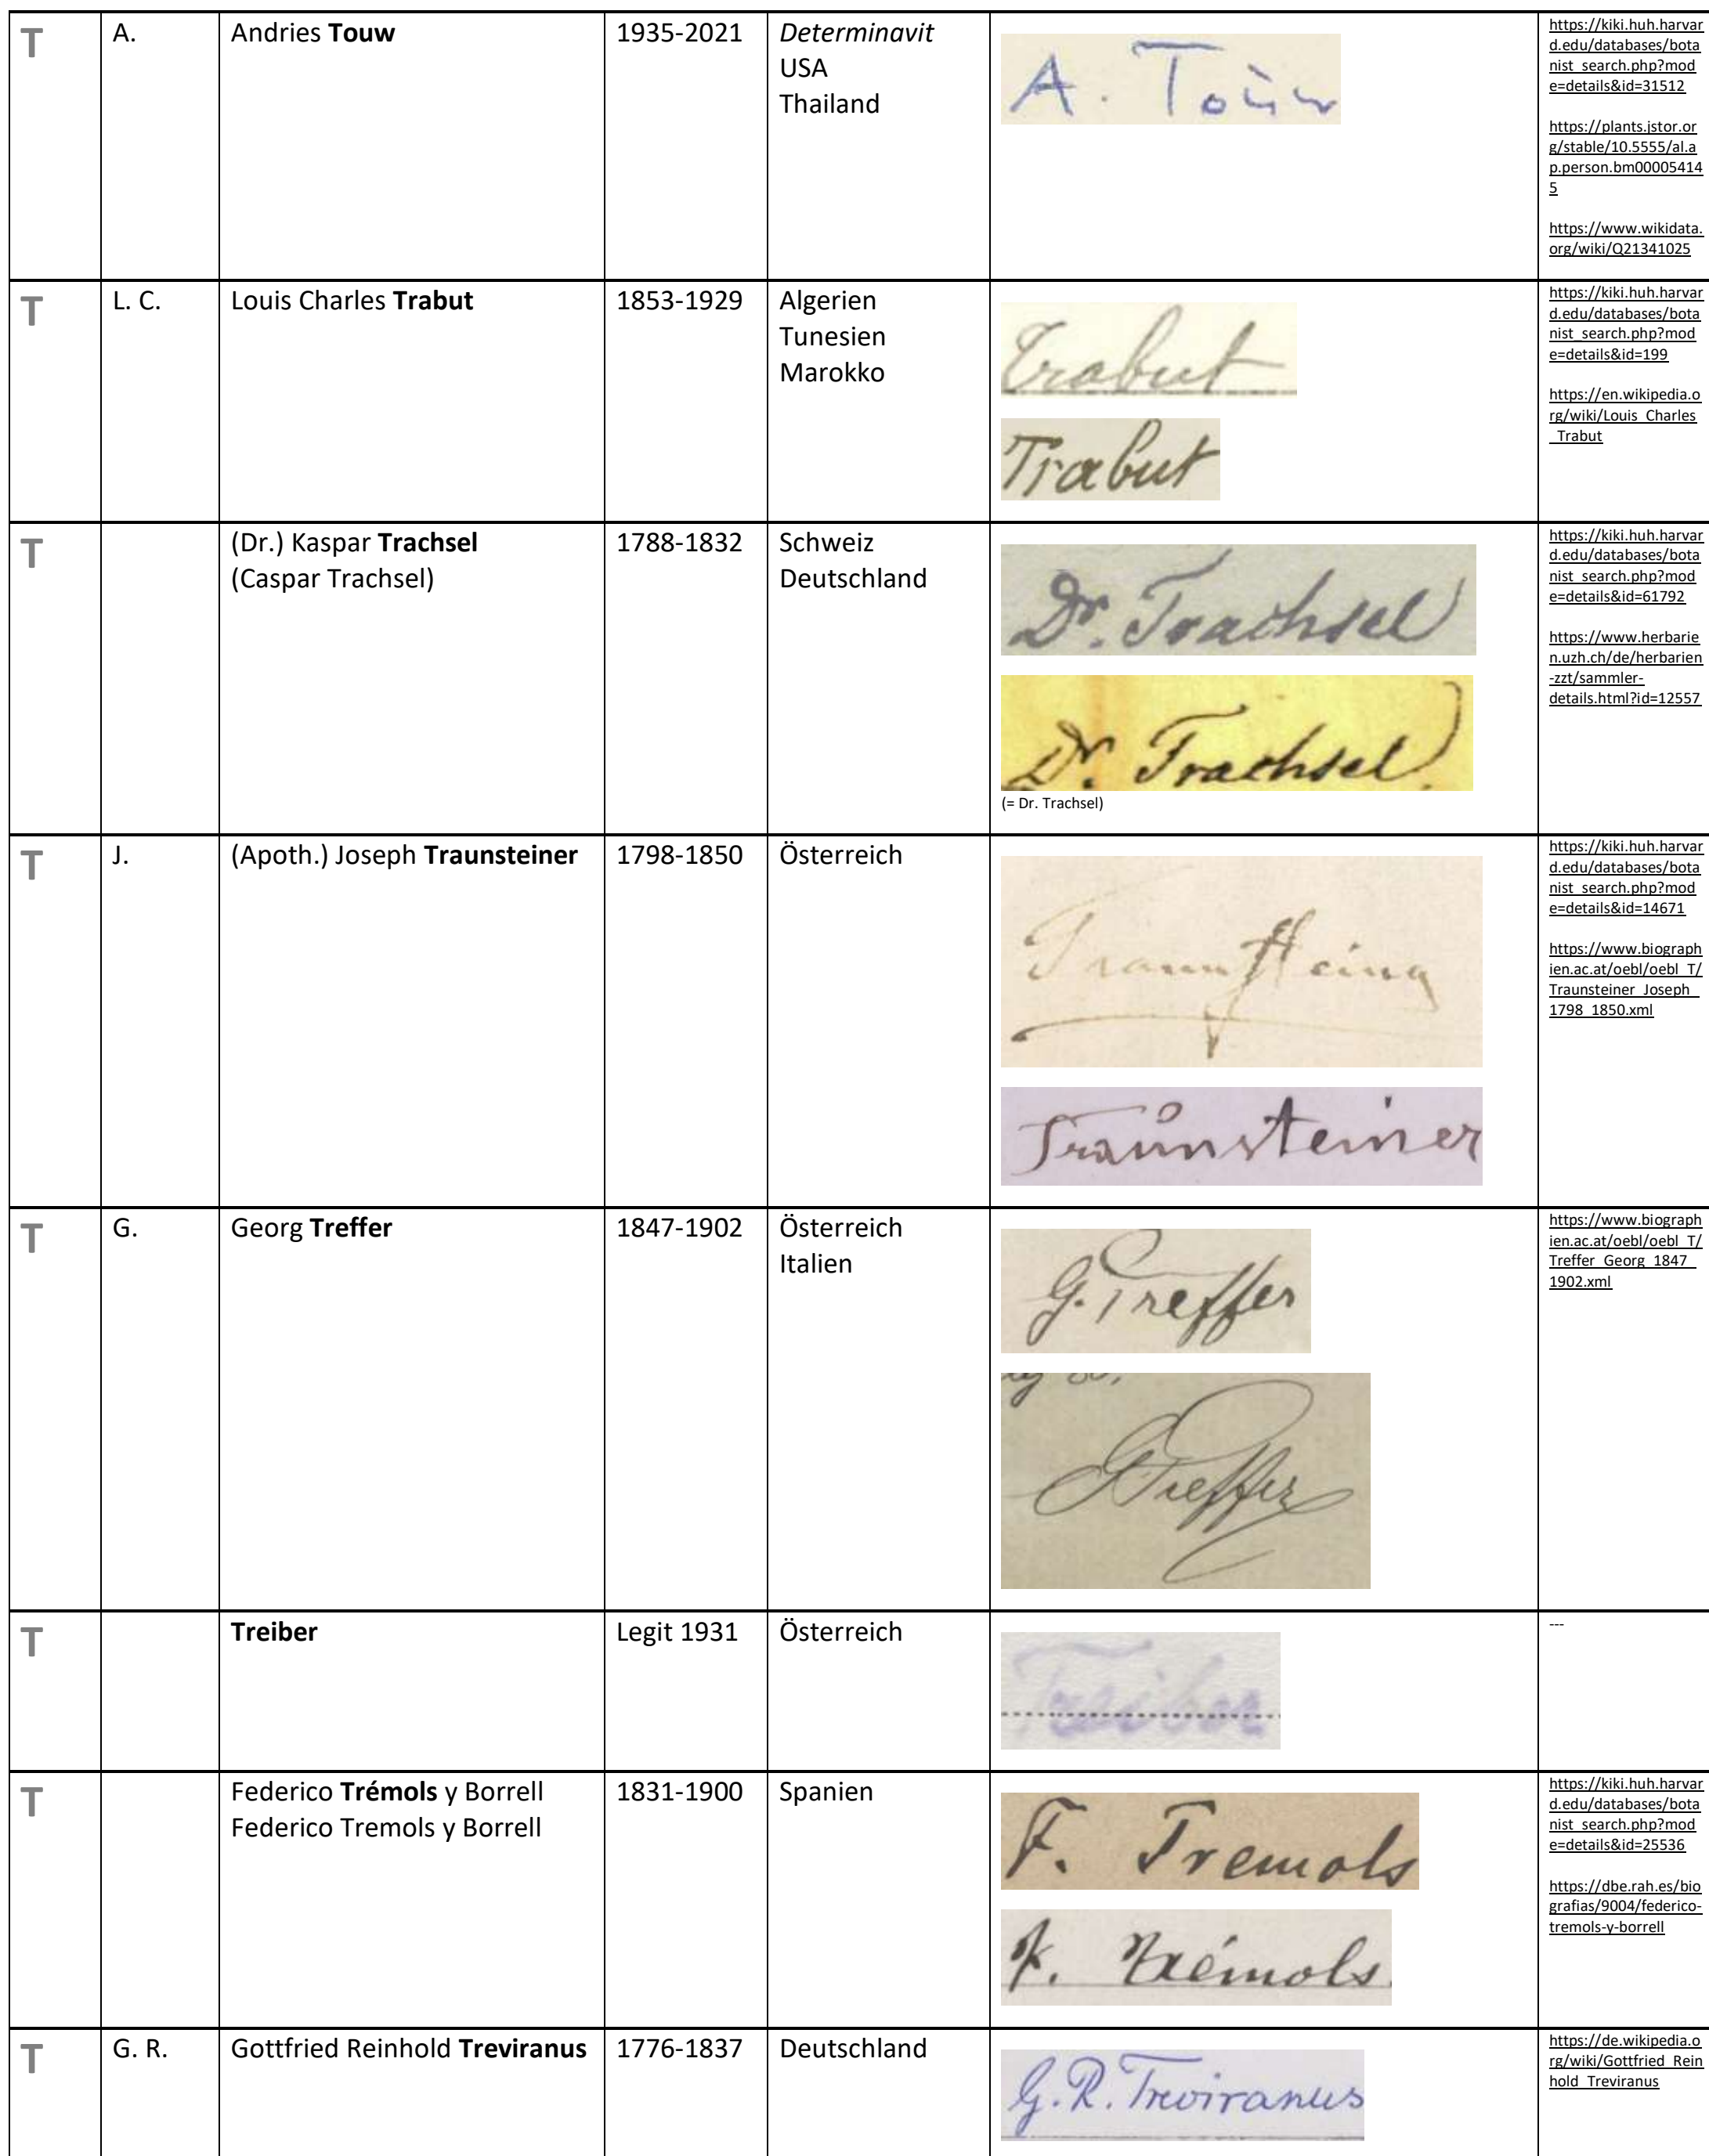 T
A.
Andries Touw
1935-2021
Determinavit
USA
Thailand
A. Toùw
https://kiki.huh.harvar
d.edu/databases/bota
nist_search.php?mod
e=details&id=31512
https://plants.jstor.or
g/stable/10.5555/al.a
p.person.bm00005414
5
https://www.wikidata.
org/wiki/Q21341025
T
L. C.
Louis Charles Trabut
1853-1929
Algerien
Tunesien
Marokko
Trabut
Trabut
https://kiki.huh.harvar
d.edu/databases/bota
nist_search.php?mod
e=details&id=199
https://en.wikipedia.o
rg/wiki/Louis_Charles
_Trabut
T
(Dr.) Kaspar Trachsel
(Caspar Trachsel)
1788-1832
Schweiz
Deutschland
Dr. Trachsel
Dr. Trachsel
(= Dr. Trachsel)
https://kiki.huh.harvar
d.edu/databases/bota
nist_search.php?mod
e=details&id=61792
https://www.herbarie
n.uzh.ch/de/herbarien
-zzt/sammler-
details.html?id=12557
T
J.
(Apoth.) Joseph Traunsteiner
1798-1850
Österreich
Traunsteiner
Traunsteiner
https://kiki.huh.harvar
d.edu/databases/bota
nist_search.php?mod
e=details&id=14671
https://www.biograph
ien.ac.at/oebl/oebl_T/
Traunsteiner_Joseph_
1798_1850.xml
T
G.
Georg Treffer
1847-1902
Österreich
Italien
G. Treffer
GTreffer
https://www.biograph
ien.ac.at/oebl/oebl_T/
Treffer_Georg_1847_
1902.xml
T
Treiber
Legit 1931
Österreich
Treiber
---
T
Federico Trémols y Borrell
Federico Tremols y Borrell
1831-1900
Spanien
F. Tremols
F. Trémols
https://kiki.huh.harvar
d.edu/databases/bota
nist_search.php?mod
e=details&id=25536
https://dbe.rah.es/bio
grafias/9004/federico-
tremols-y-borrell
T
G. R.
Gottfried Reinhold Treviranus
1776-1837
Deutschland
G. R. Treviranus
https://de.wikipedia.o
rg/wiki/Gottfried_Rein
hold_Treviranus